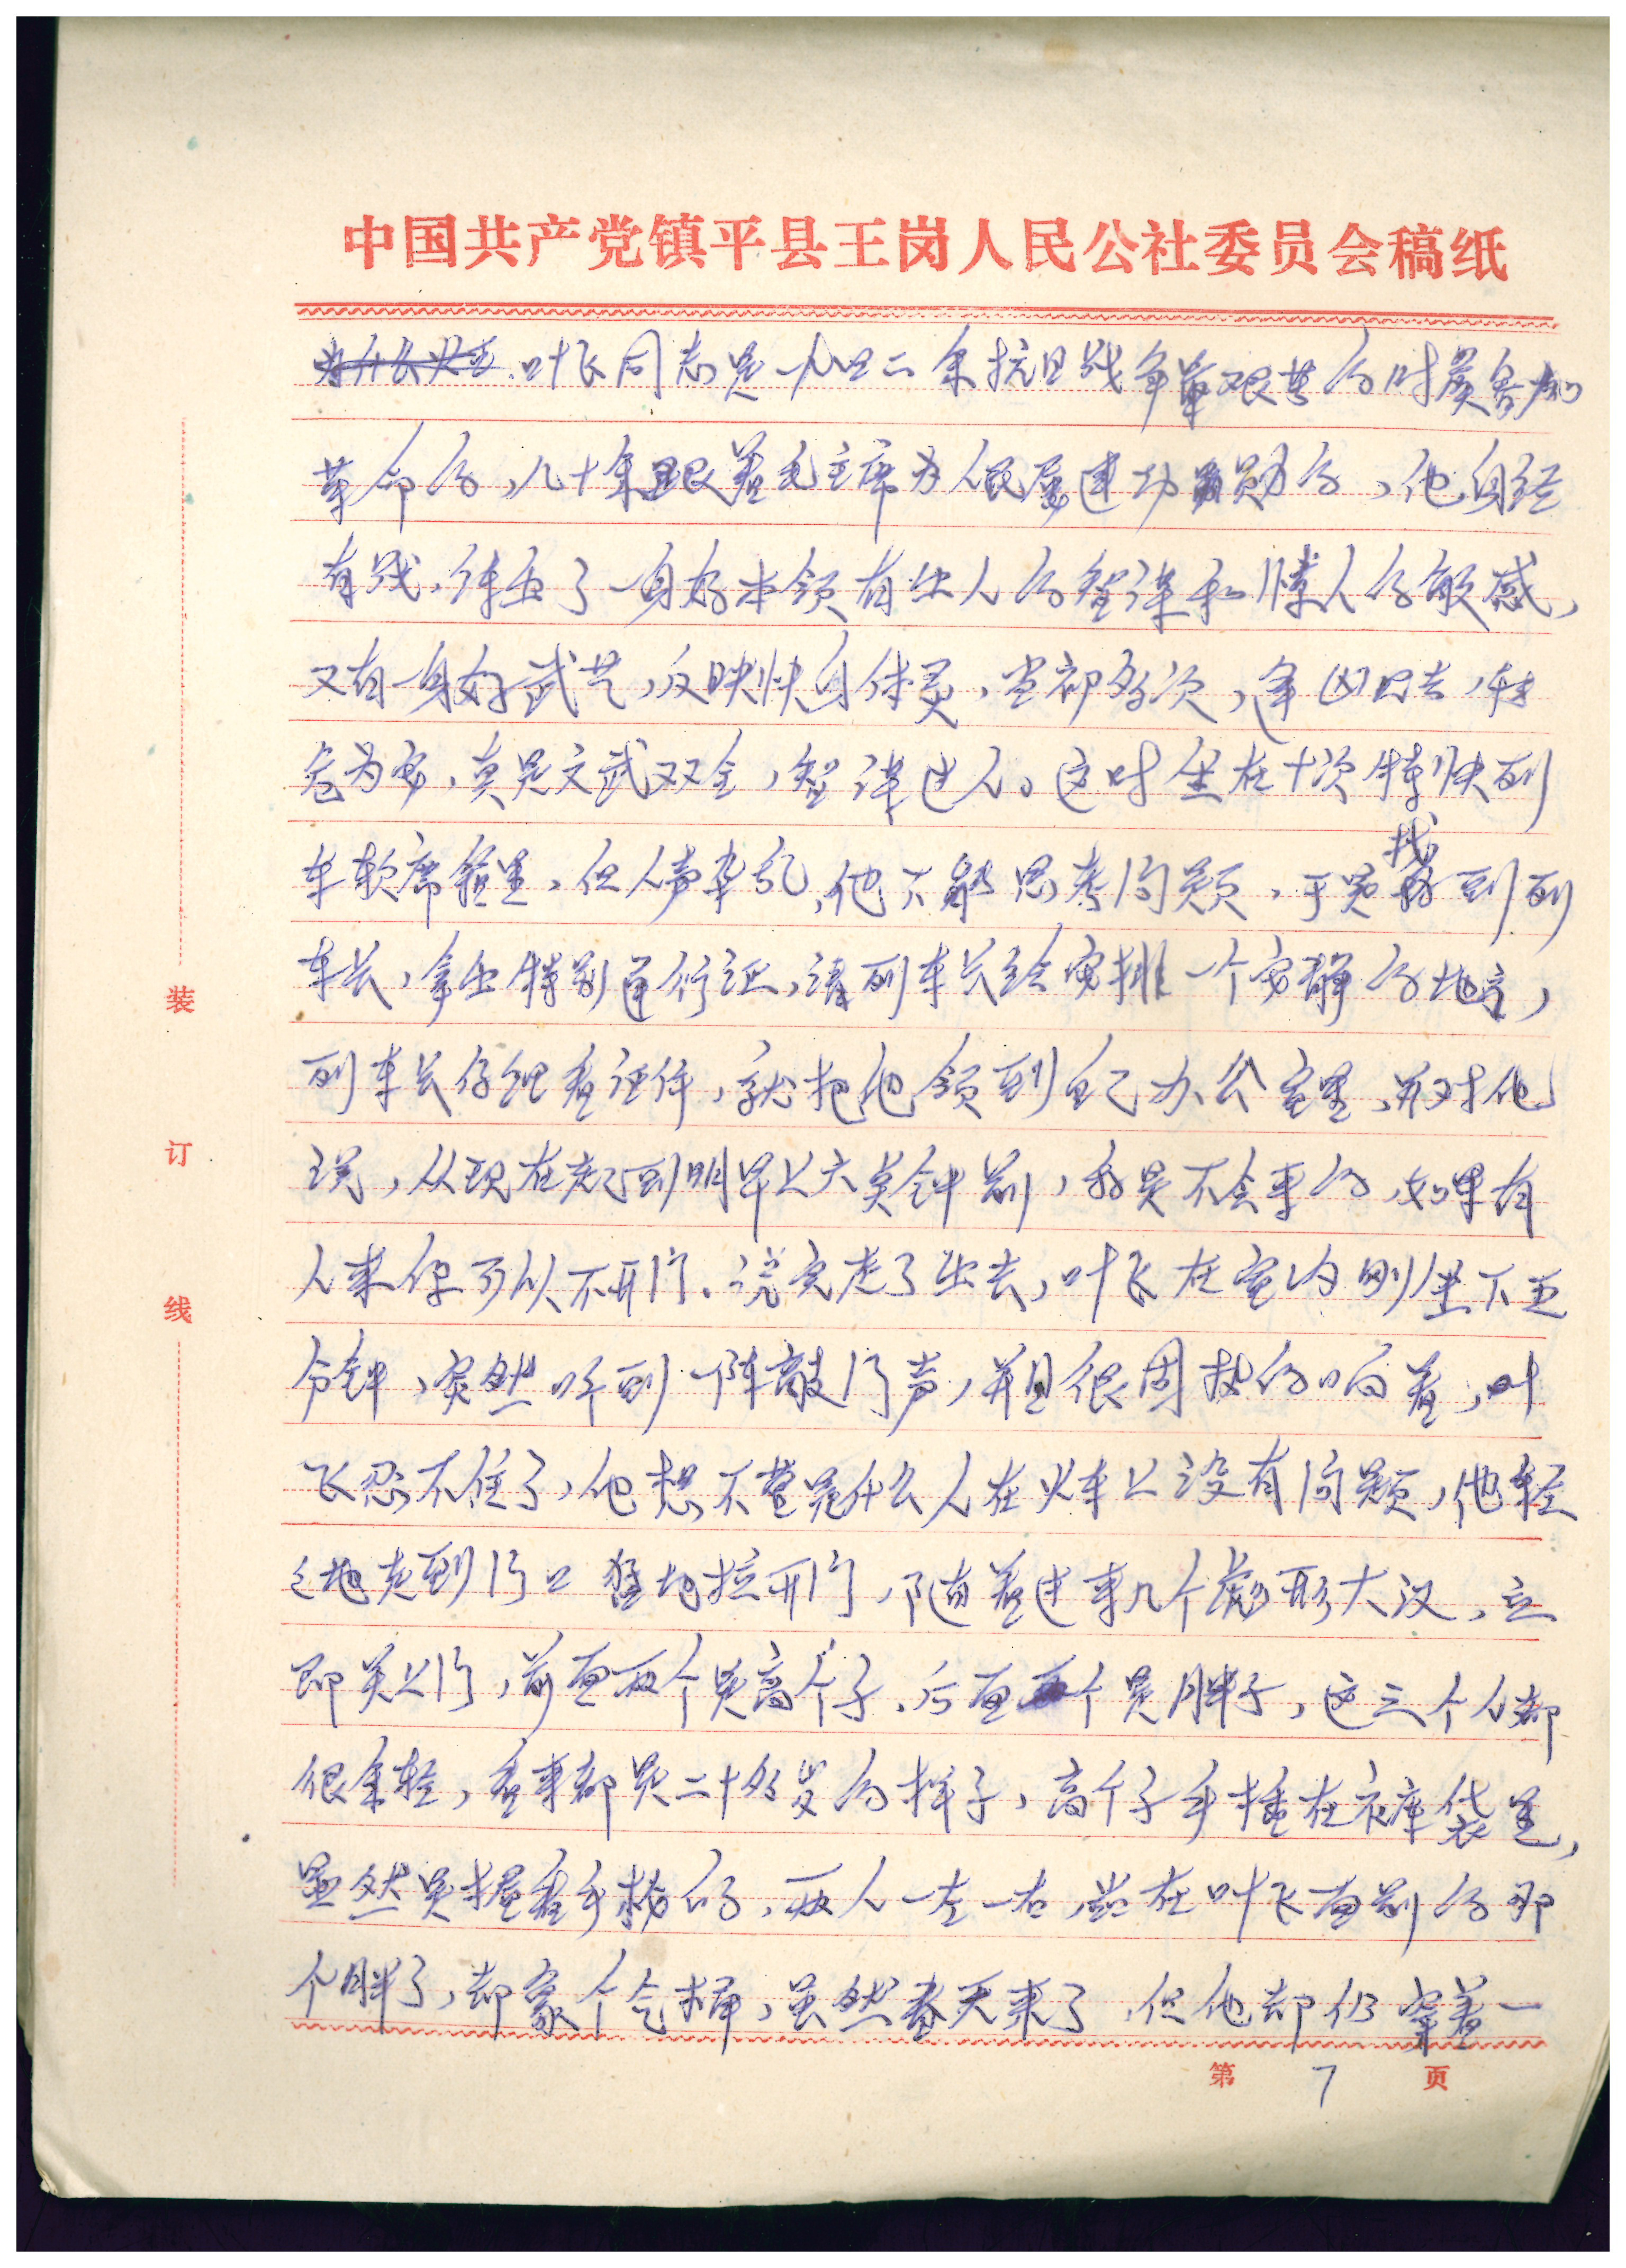 中国共产党镇平县王岗人民公社委员会稿纸
叶飞同志是一九四二年抗日战争最艰苦的时候参加
革命的，几十年跟着毛主席为人民屡建功勋的，他身经
百战，练出了一身好本领有出人的智谋和惊人的敏感，
又有一身好武艺，反映快身体灵，当初多次，逢凶日去，转
危为安，真是文武双全，智谋过人。这时坐在十次特快列
车软席舱里，但人声杂乱，他不能思考问题，于是找到列
车长，拿出特别通行证，请列车长给安排一个安静的地方，
列车长仔细看证件，就把他领到自己办公室里，并对他
说，从现在起到明早上六点钟前，我是不会来的，如果有
人来你可以不开门，说完走了出去，叶飞在室内刚坐下五
分钟，突然听到一阵敲门声，并且很固执的响着，叶
飞忍不住了，他想不管是什么人在火车上没有问题，他轻
々地走到门口猛地拉开门，随着进来几个彪形大汉，立
即关上门，前面两个是高个子，后面个是胖子，这三个人都
很年轻，看来都是二十多岁的样子，高个子手插在衣库袋里，
显然是握着手枪的，两人一左一右，站在叶飞面前的那
个胖子，却象个气桶，虽然春天来了，但他却仍穿着一
装
订
线
第 7 页